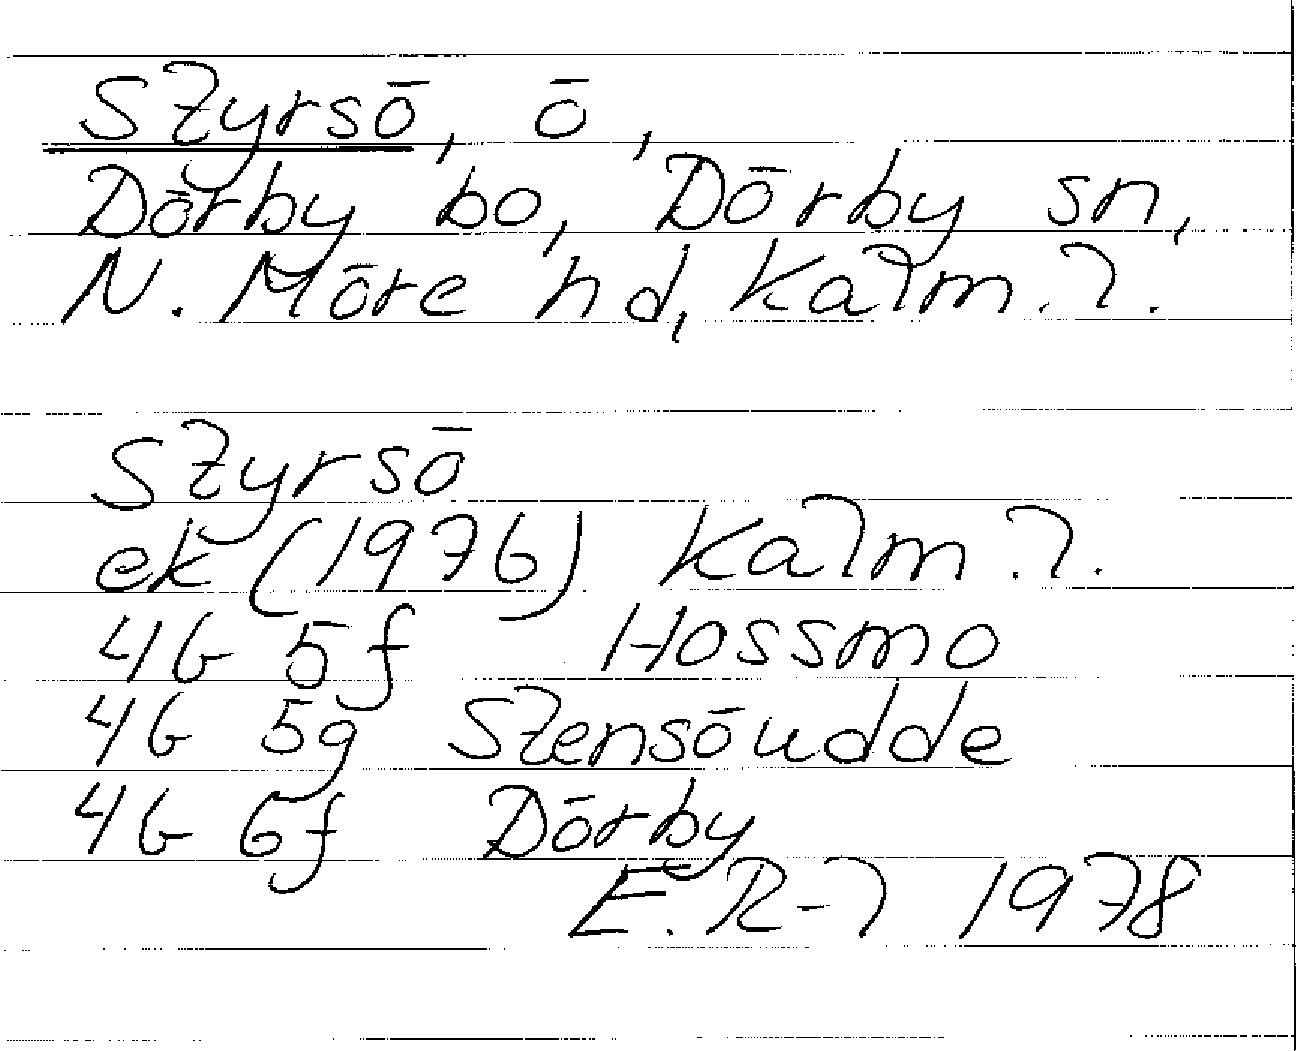 Styrsö, ö,
Dörby bo, Dörby sn,
N. Möre hd, Kalm. l.
Styrsö
ek (1976) Kalm. l.
4G 5f Hossmo
4G 5g Stensöudde
4G 6f Dörby
E. R-l 1978